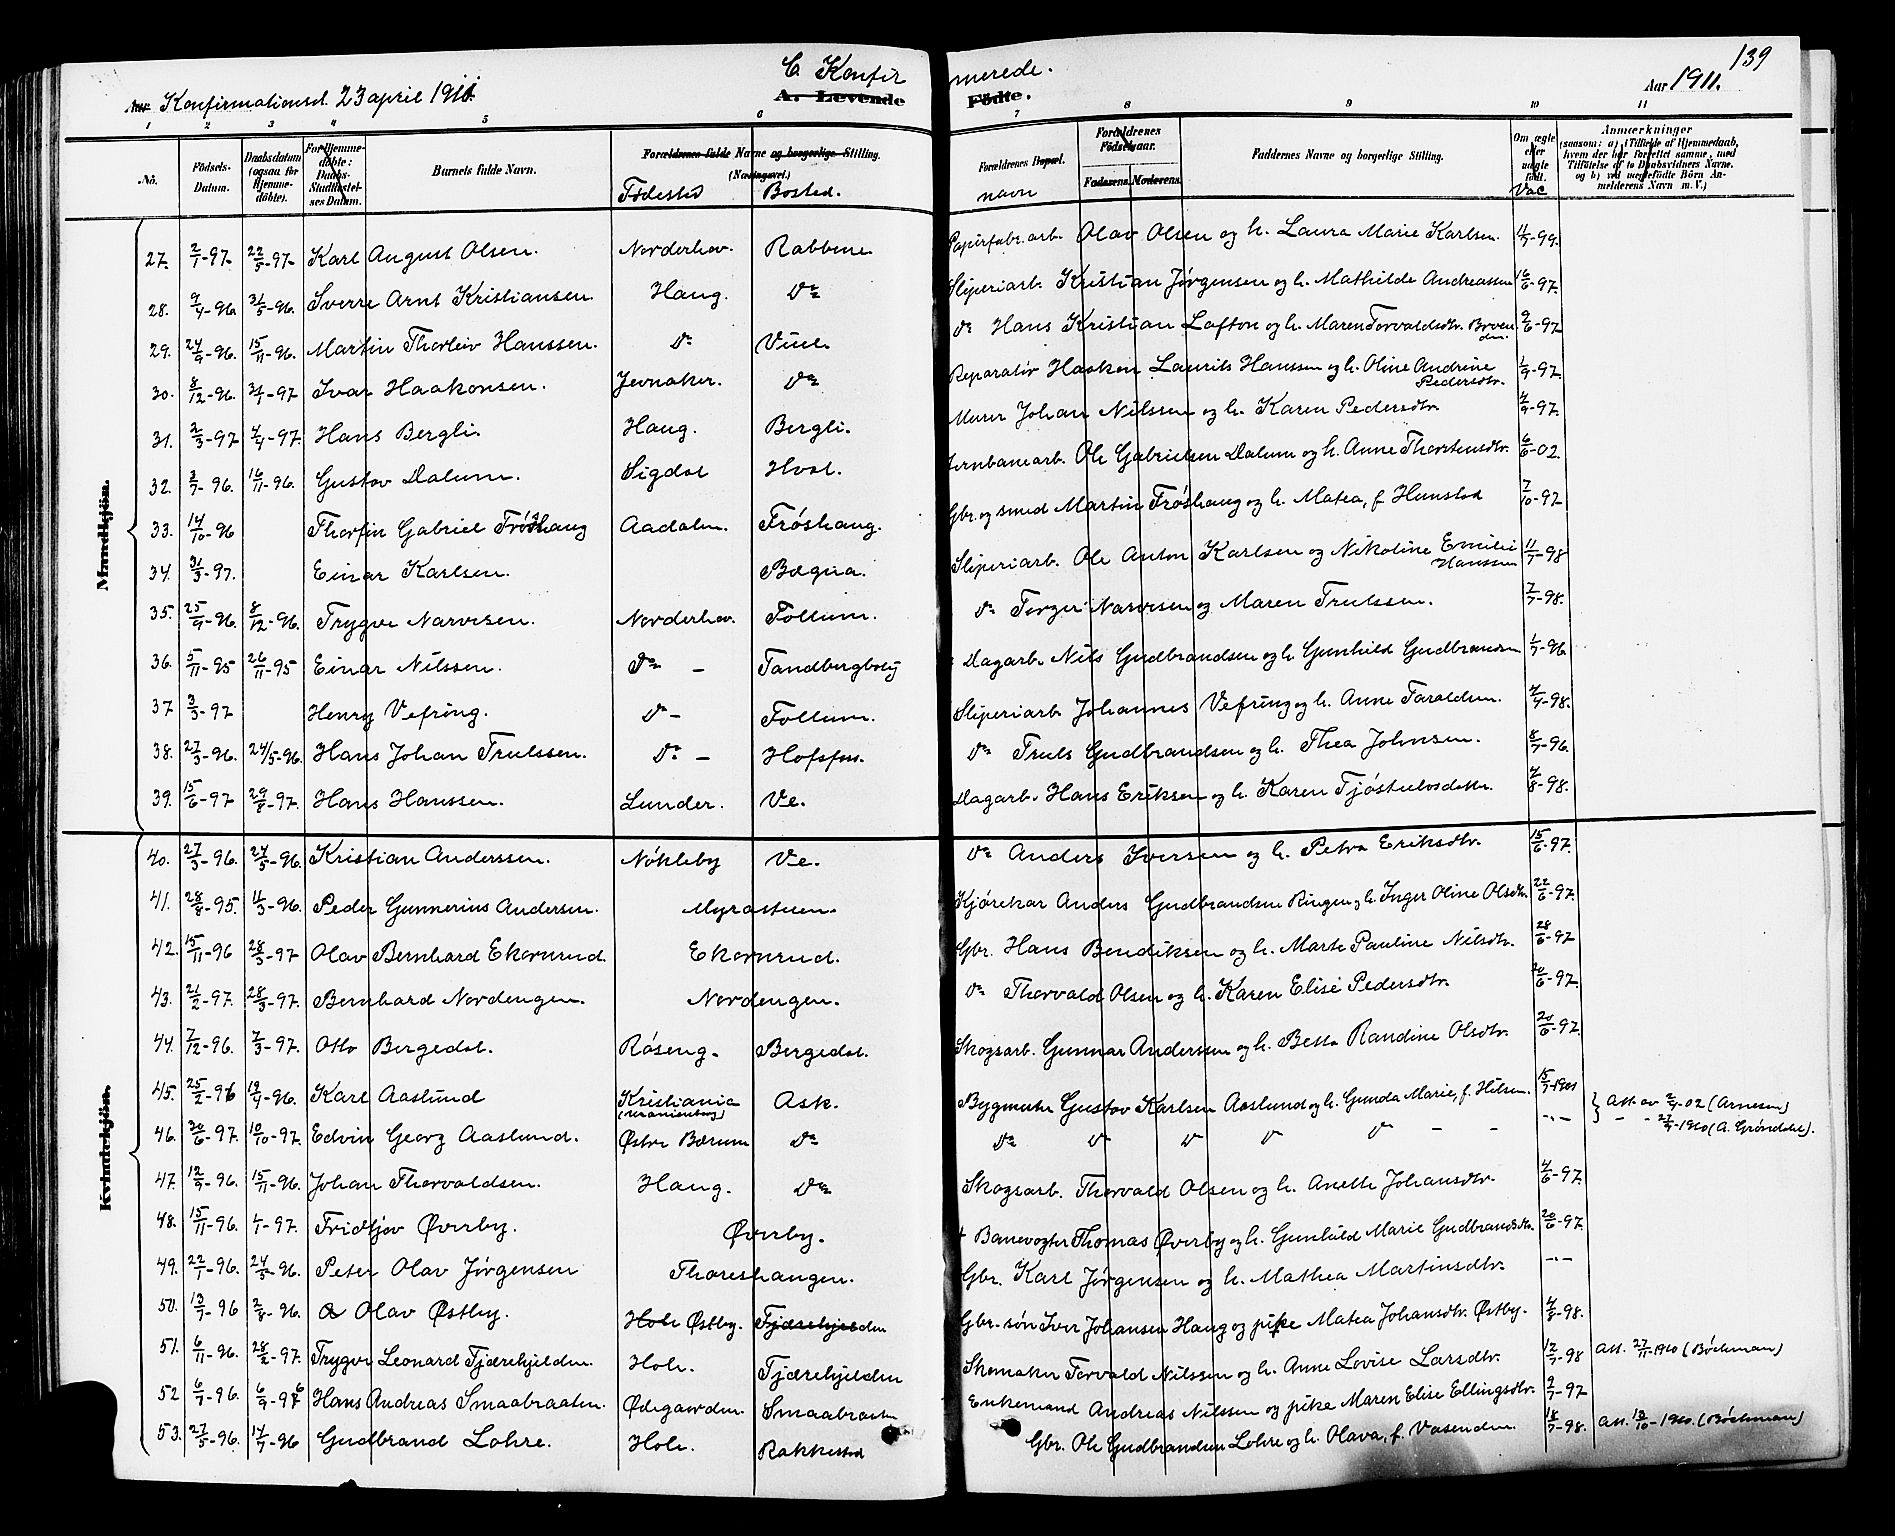 139
C Konfirmerede.
Aar Konfirmationsd. 23 april 1911.
A. Levende Födte.
Aar 1911.
1 2 3 4 5 6 7 8 9 10 11
No. Födsels-Datum. Daabsdatum (ogsaa for Hjemmedöbte). For Hjemmedöbte: Daabs-Stadfæstelses Datum. Barnets fulde Navn. Forældrenes fulde Navne og borgerlige Stilling. (Næringsvei.) Forældrenes Bopæl. Forældrenes Födselsaar. Faderens. Moderens. Faddernes Navne og borgerlige Stilling. Om ægte eller uægte födt. Anmærkninger (saasom: a) i Tilfælde af Hjemmedaab, hvem der har forrettet samme, med Tilföielse af to Daabsvidners Navne, og b) ved uægtefödte Börn Anmelderens Navn m. V.)
Fødested Bosted. navn Vac
Mandkjön.
27. 2/1-97. 22/5-97. Karl August Olsen. Norderhov. Rabbene Papirfabr.arb. Olav Olsen og h. Laura Marie Karlsen. 4/7-99.
28. 9/4-96. 31/5-96. Sverre Arnt Kristiansen. Haug. Do Sliperiarb. Kristian Jørgensen og h. Mathilde Andreassen 16/6-97.
29. 24/9-96. 15/11-96. Martin Thorleiv Hanssen. Do Viul. do Hans Kristian Lofton og h. Maren Torvaldsdtr. Broen 9/6-97
30. 8/12-96. 31/1-97 Ivar Haakonsen. Jevnaker. Do Reparatør Haaken Laurits Hanssen og h. Oline Andrine Pedersdtr. 1/9-97.
31. 2/3-97 4/4-97. Hans Bergli. Haug. Bergli. Murer Johan Nilssen og h. Karen Pedersdtr. 4/9-97.
32. 3/7-96. 16/11-96. Gustav Dalum. Sigdal Hval. Jernbanearb. Ole Gabrielsen Dalum og h. Anne Thorstensdtr. 6/6-02.
33. 14/10-96 Thorfin Gabriel Frøshaug Aadalen. Frøshaug. Gbr. og smed Martin Frøshaug og h. Matea, f. Hunstad 7/10-97.
34. 31/3-97. Einar Karlsen. Bægna. Sliperiarb. Ole Anton Karlsen og Nikoline Emilie Hanssen 11/7-98
35. 25/9-96. 8/12-96. Trygve Narvesen. Norderhov. Follum. do Torger Narvesen og Maren Trulssen. 7/7-98.
36. 5/11-95 26/11-95 Einar Nilssen. Do - Tandbergbolig Dagarb. Nils Gudbrandsen og h. Gunhild Gudbrandsen 1/7-96
37 3/3-97 Henry Vefring. Do - Follum. Sliperiarb. Johannes Vefring og h. Anne Taraldsen. 4/4-98.
38. 27/3-96. 24/5-96. Hans Johan Trulssen. Do - Hofsfos. Do Truls Gudbrandsen og h. Thea Johnsen. 8/7-96.
39. 15/6-97 29/8-97. Hans Hanssen. Lunder. Ve. Dagarb. Hans Eriksen og h. Karen Tjøstulvsdatter 4/8-98.
Kvindekjön.
40. 27/3-96. 24/5-96. Kristian Anderssen. Nøkleby Ve. Do Anders Iversen og h. Petra Eriksdtr. 15/6-97.
41. 28/8-95. 1/3-96. Peder Gunnerius Andersen. Myrastuen. Kjørekar Anders Gudbrandsen Ringen og h. Inger Oline Olsdtr. 22/6-97.
42. 15/11-96 28/3-97 Olav Bernhard Ekornrud. Ekornrud. Gbr. Hans Bendiksen og h. Marte Pauline Nilsdtr. 28/6-97
43. 21/2-97. 28/3-97. Bernhard Nordengen. Nordengen. Do Thorvald Olsen og h. Karen Elise Pedersdtr. 20/6-97.
44. 7/12-96. 7/3-97. Otto Bergedal. Røseng. Bergedal. Skogsarb. Gunnar Anderssen og h. Betta Randine Olsdtr. 20/6-97.
45. 25/2-96 19/4-96. Karl Aaslund Kristiania (Uranienborg) Ask. Bygmester Gustov Karlsen Aaslund og h. Gunda Marie, f. Hilsen. 15/7-1901 Att. av 2/4-02 (Arnesen)
46. 30/6-97. 10/10-97. Edvin Georg Aaslund. Østre Bærum Do Do Do Do Do Do - - -"- - - 22/4-1910 (A. Grøndahl).
47. 12/9-96. 15/11-96. Johan Thorvaldsen. Haug. Do Skogsarb. Thorvald Olsen og h. Anette Johansdtr. 4/6-97.
48. 15/11-96. 1/1-97. Fridtjov Øverby. Øverby. + Banevogter Thomas Øverby og h. Gunhild Marie Gudbrandsdtr. 20/6-97.
49. 22/1-96. 24/5-96. Peter Olav Jørgensen Thoreshaugen. Gbr. Karl Jørgensen og h. Mathea Martinsdtr. -"-
50. 13/7-96 2/8-96. Olav Østby. Hole Østby. Fjærehjelden Gbr. søn Iver Johansen Haug og pike Matea Johansdtr. Østby. 4/8-98.
51. 6/11-96. 28/2-97. Trygve Leonard Fjærehjelden. Hole. Fjærehjelden Skomaker Torvald Nilssen og h. Anne Lovise Larsdtr. 12/7-98 Att. 27/11-1910 (Bóckman)
52 6/7-96. 6/9-96 Hans Andreas Smaabraaten. Ødegaarden. Smaabraaten Enkemand Andreas Nilssen og pike Maren Elise Ellingsdtr. 9/7-97
53. 27/5-96. 14/7-96 Gudbrand Lohre. Hole. Rakkestad Gbr. Ole Gudbrandsen Lohre og h. Olava, f. Vasenden. 18/7-98. Att. 13/10-1910. (Bóckman)